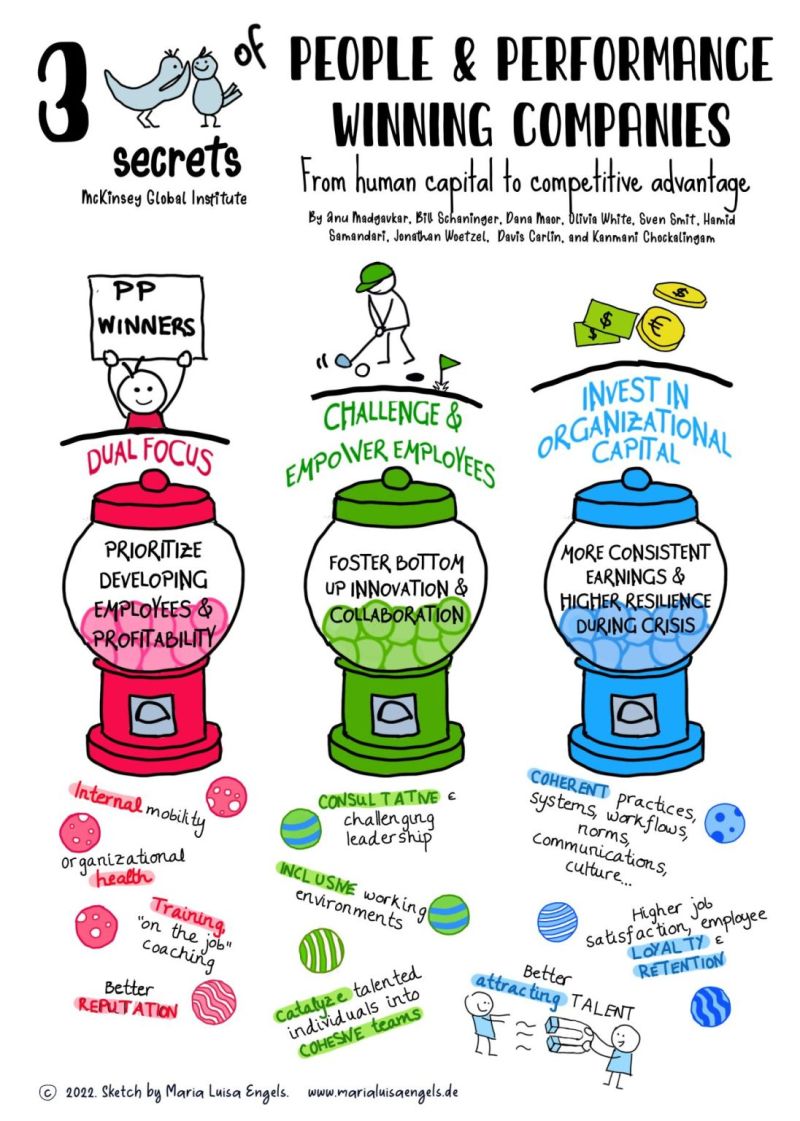 3 of
secrets
McKinsey Global Institute
PEOPLE & PERFORMANCE
WINNING COMPANIES
From human capital to competitive advantage
By Anu Madgavkar, Bill Schaninger, Dana Maor, Olivia White, Sven Smit, Hamid
Samandari, Jonathan Woetzel, Davis Carlin, and Kanmani Chockalingam
PP
WINNERS
DUAL FOCUS
PRIORITIZE
DEVELOPING
EMPLOYEES &
PROFITABILITY
Internal mobility
organizational
health
Training,
"on the job"
coaching
Better
REPUTATION
CHALLENGE &
EMPOWER EMPLOYEES
FOSTER BOTTOM
UP INNOVATION &
COLLABORATION
CONSULTATIVE &
challenging
leadership
INCLUSIVE working
environments
Catalyze talented
individuals into
COHESIVE teams
$
$
$
€
INVEST IN
ORGANIZATIONAL
CAPITAL
MORE CONSISTENT
EARNINGS &
HIGHER RESILIENCE
DURING CRISIS
COHERENT practices,
systems, workflows,
norms,
communications,
culture...
Higher job
satisfaction, employee
LOYALTY &
RETENTION
Better
attracting TALENT
© 2022. Sketch by Maria Luisa Engels. www.marialuisaengels.de